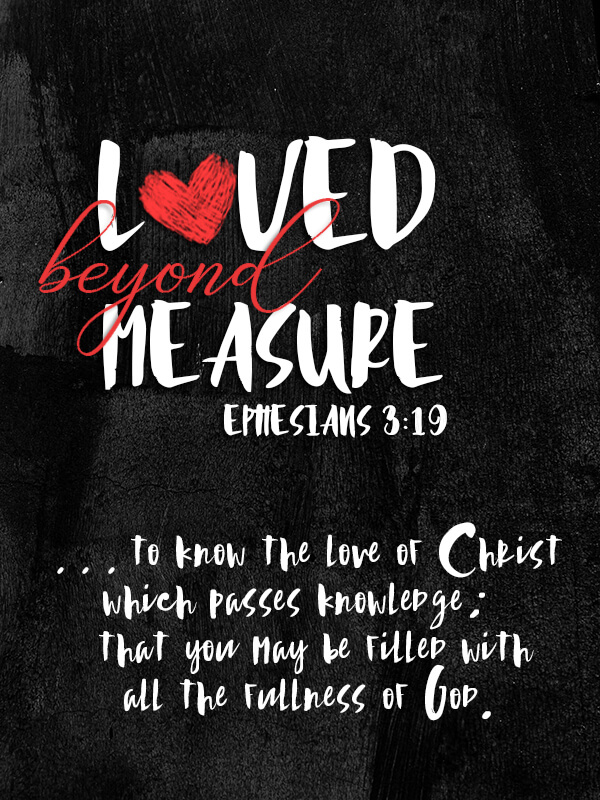 LOVED
beyond
MEASURE
EPHESIANS 3:19
... to know the love of Christ
which passes knowledge;
that you may be filled with
all the fullness of God.